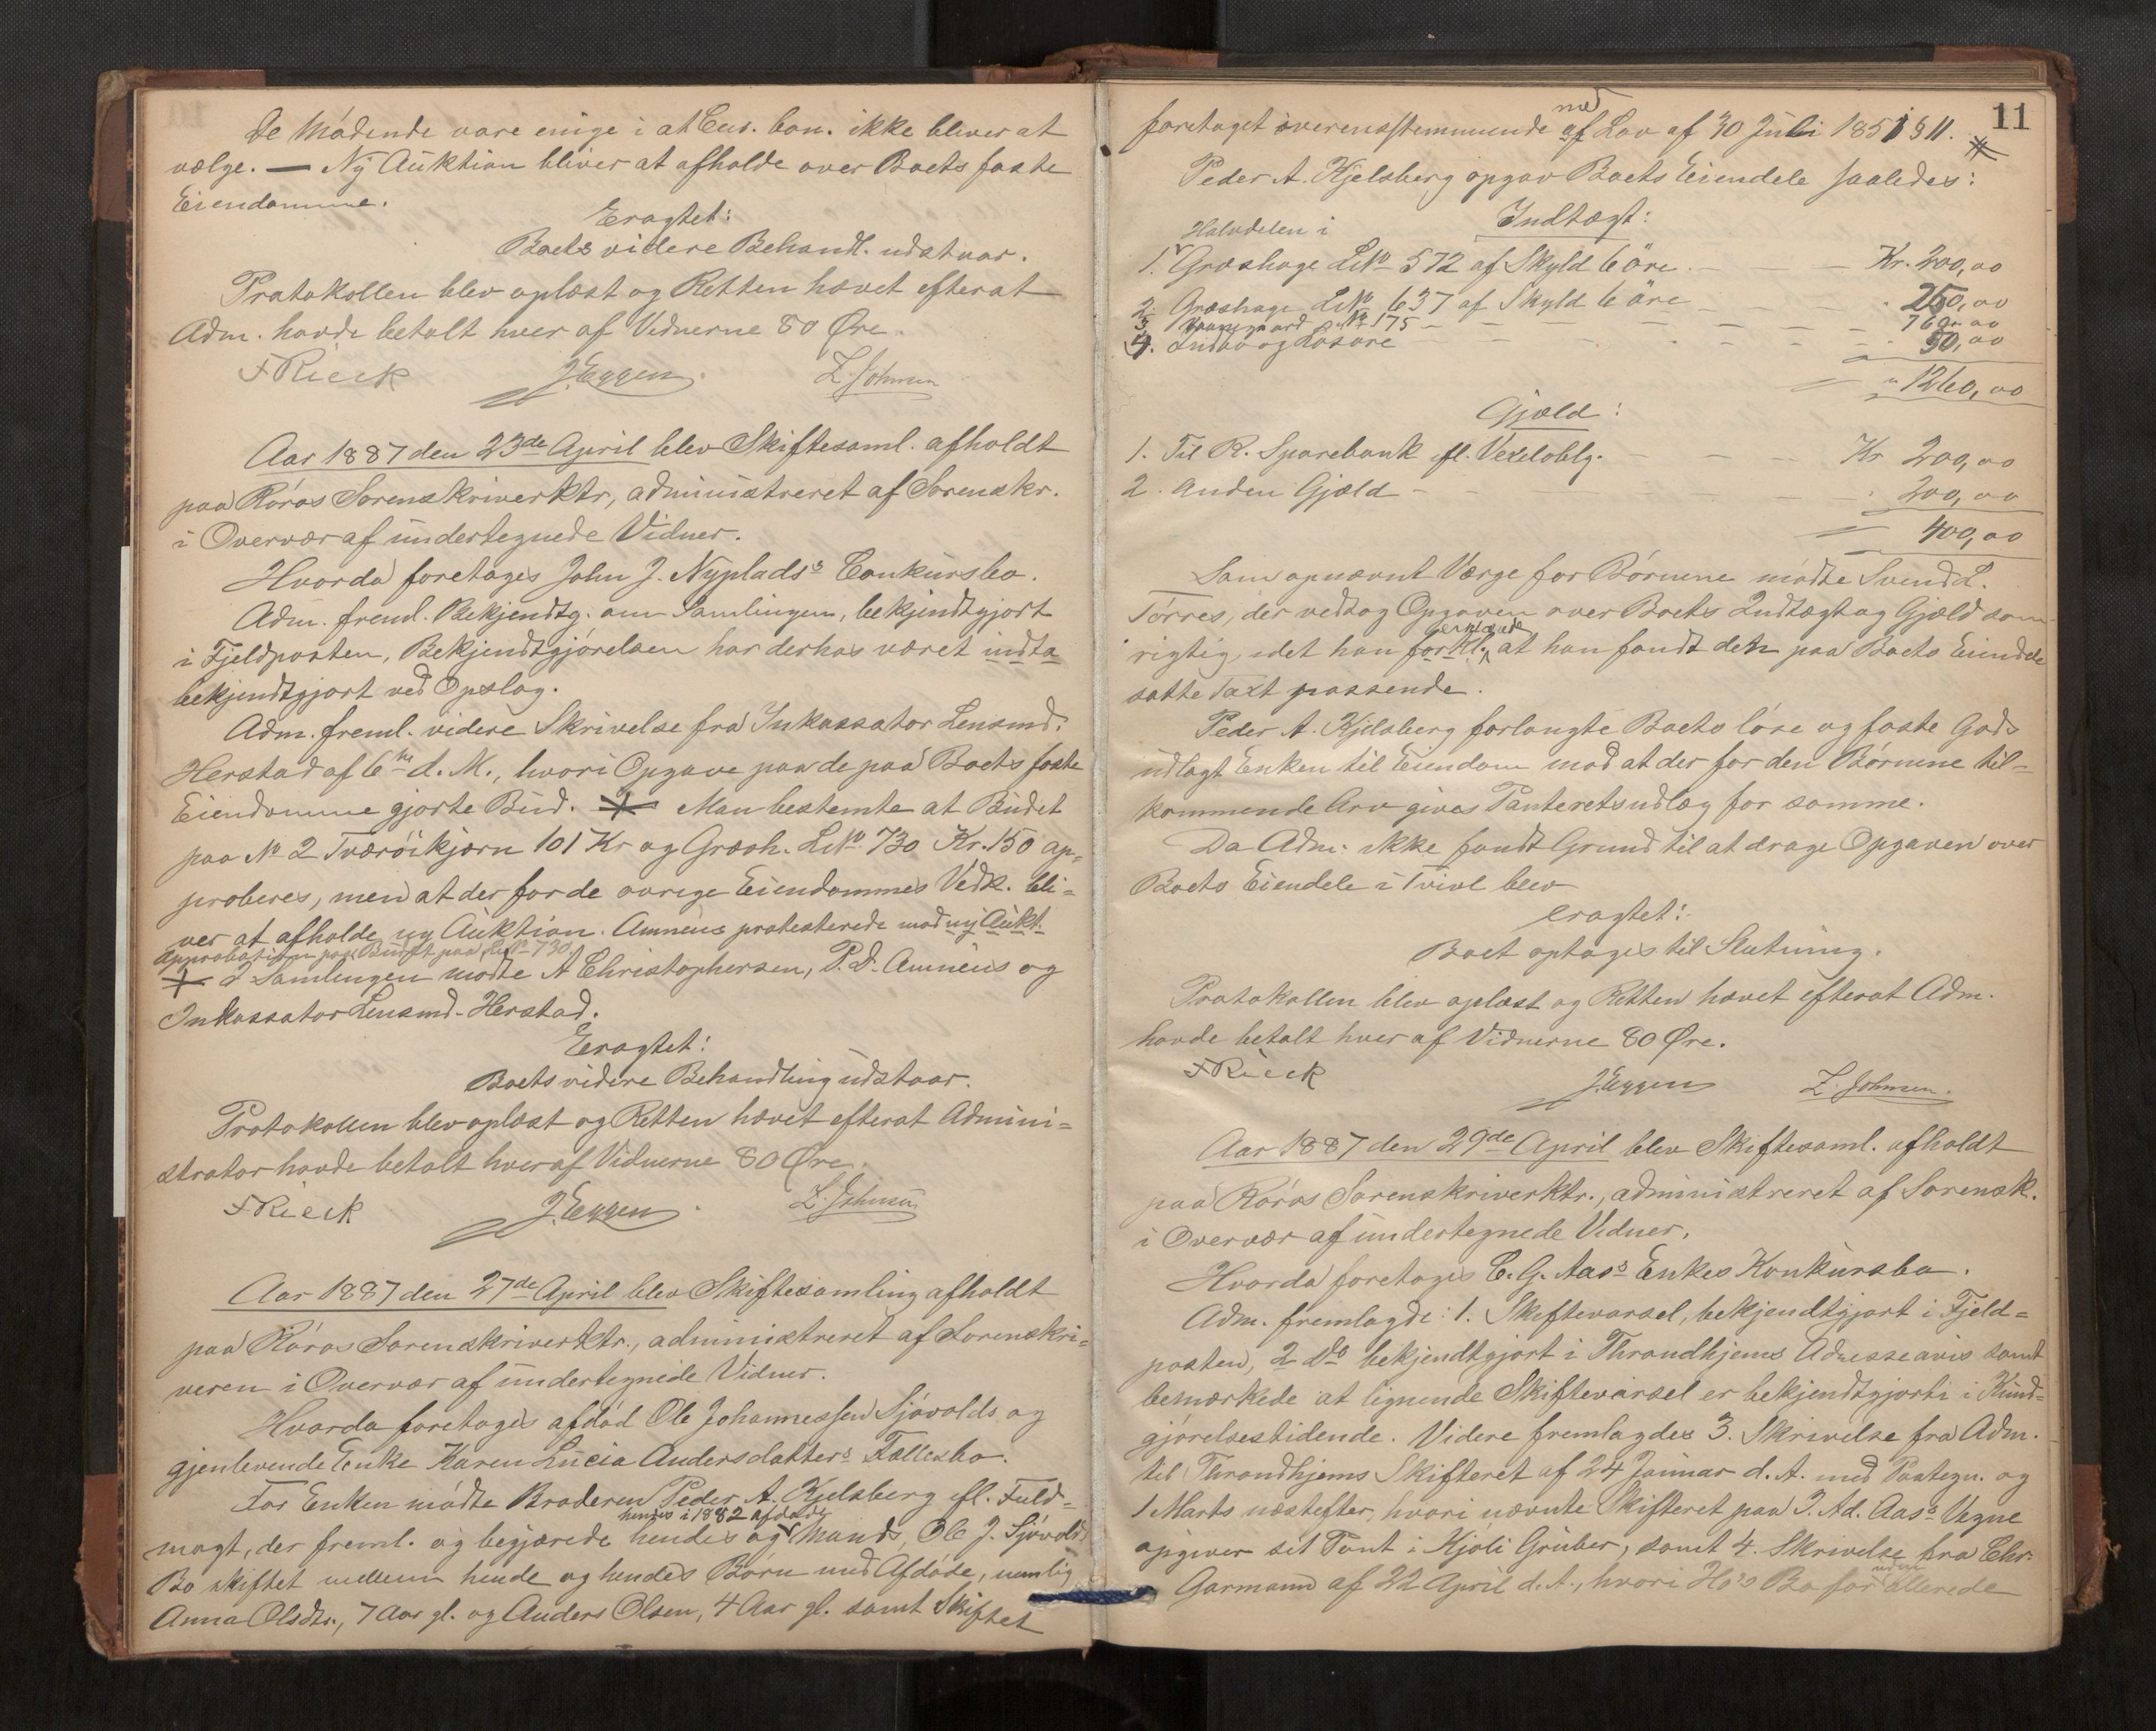 De Mødende vare enige i at Cur. bon. ikke bliver at
vælge. — Ny Auktion bliver at afholde over Boets faste
Eiendomme.
Eragtet:
Boets videre Behandl. udstaar.
Protokollen blev oplæst og Retten hævet efterat
Adm. havde betalt hver af Vidnerne 80 Øre.
F Rieck J. Eggen. Z. Johnsen
Aar 1887 den 23de April blev Skiftesaml. afholdt
paa Røros Sorenskriverktr, administreret af Sorenskr.
i Overvær af undertegnede Vidner.
Hvorda foretoges John J. Nyplads's Conkursbo.
Adm. freml. Bekjendtg. om Samlingen, bekjendtgjort
i Fjeldposten, Bekjendtgjørelsen har derhos været
bekjendtgjort ved Opslag.
Adm. freml. videre Skrivelse fra Inkassator Lensmd.
Herstad af 6te d. M., hvori Opgave paa de paa Boets faste
Eiendomme gjorte Bud. Man bestemte at Budet
paa No 2 Tværøikjærn 101 Kr og Græsh. LNo. 730 Kr. 150 ap-
proberes, men at der for de øvrige Eiendommes Vedk. bli-
ver at afholde ny Auktion. Amnéus protesterede mod ny Aukt.
Approbation paa Budet paa LNo 730.
I Samlingen mødte A Christophersen, P. D. Amnéus og
Inkassator Lensmd. Herstad.
Eragtet:
Boets videre Behandling udstaar.
Protokollen blev oplæst og Retten hævet efterat Admini-
strator havde betalt hver af Vidnerne 80 Øre.
F Rieck J. Eggen Z. Johnsen
Aar 1887 den 27de April blev Skiftesamling afholdt
paa Røros Sorenskriverktr., administreret af Sorenskri-
veren i Overvær af undertegnede Vidner.
Hvorda foretoges afdød Ole Johannessen Sjøvolds og
gjenlevende Enke Karen Lucia Andersdatters Fællesbo.
For Enken mødte Broderen Peder A. Kjelsberg efl. Fuld-
hendes i 1882 afdøde
magt, der freml. og begjærede hendes og Mands, Ole J. Sjøvolds
Bo skiftet mellem hende og hendes Børn med Afdøde, nemlig
Anna Olsdtr., 7 Aar gl. og Anders Olsen, 4 Aar gl. samt Skiftet
11
med
foretaget overensstemmende af Lov af 30 Juli 1851 § 11.
Peder A. Kjelsberg opgav Boets Eiendele saaledes:
Indtægt:
Halvdelen i
1. Græshage LNo 572 af Skyld 6 øre. — — — Kr. 200,00
2. Græshage LNo 637 af Skyld 6 øre — — — 250,00
3. No 175 — — — 760,00
4. Indbo og Løsøre — — — 50,00
1260,00
Gjæld:
1. Til R. Sparebank efl. Vexeloblg. — — — Kr 200,00
2. Anden Gjæld — — — 200,00
400,00
Som opnævnt Værge for Børnene mødte Svend L.
Tørres, der vedtog Opgaven over Boets Indtægt og Gjæld som
erklærede
rigtig, idet han forkl. at han fandt den paa Boets Eiendele
satte Taxt passende.
Peder A. Kjelsberg forlangte Boets løse og faste Gods
udlagt Enken til Eiendom mod at der for den Børnene til-
kommende Arv gives Panteretsudlæg for samme.
Da Adm. ikke fandt Grund til at drage Opgaven over
Boets Eiendele i Tvivl blev
eragtet:
Boet optages til Slutning.
Protokollen blev oplæst og Retten hævet efterat Adm.
havde betalt hver af Vidnerne 80 Øre.
F Rieck J. Eggen Z. Johnsen.
Aar 1887 den 29de April blev Skiftesaml. afholdt
paa Røros Sorenskriverktr., administreret af Sorensk.
i Overvær af undertegnede Vidner.
Hvorda foretoges C. G. Aas's Enkes Konkursbo.
Adm. fremlagde: 1. Skiftevarsel, bekjendtgjort i Fjeld-
posten, 2 do bekjendtgjort i Throndhjems Adresseavis samt
bemærkede at lignende Skiftevarsel er bekjendtgjort i Kund-
gjørelsestidende. Videre fremlagdes 3. Skrivelse fra Adm.
til Throndhjems Skifteret af 24 Januar d. A. med Paategn. og
1 Marts næstefter, hvori nævnte Skifteret paa J. Ad. Aas's Vegne
opgiver sit Tant i Kjøli Gruber, samt 4. Skrivelse fra Chr.
Garmann af 22 April d. A., hvori Ho's Bo for allerede